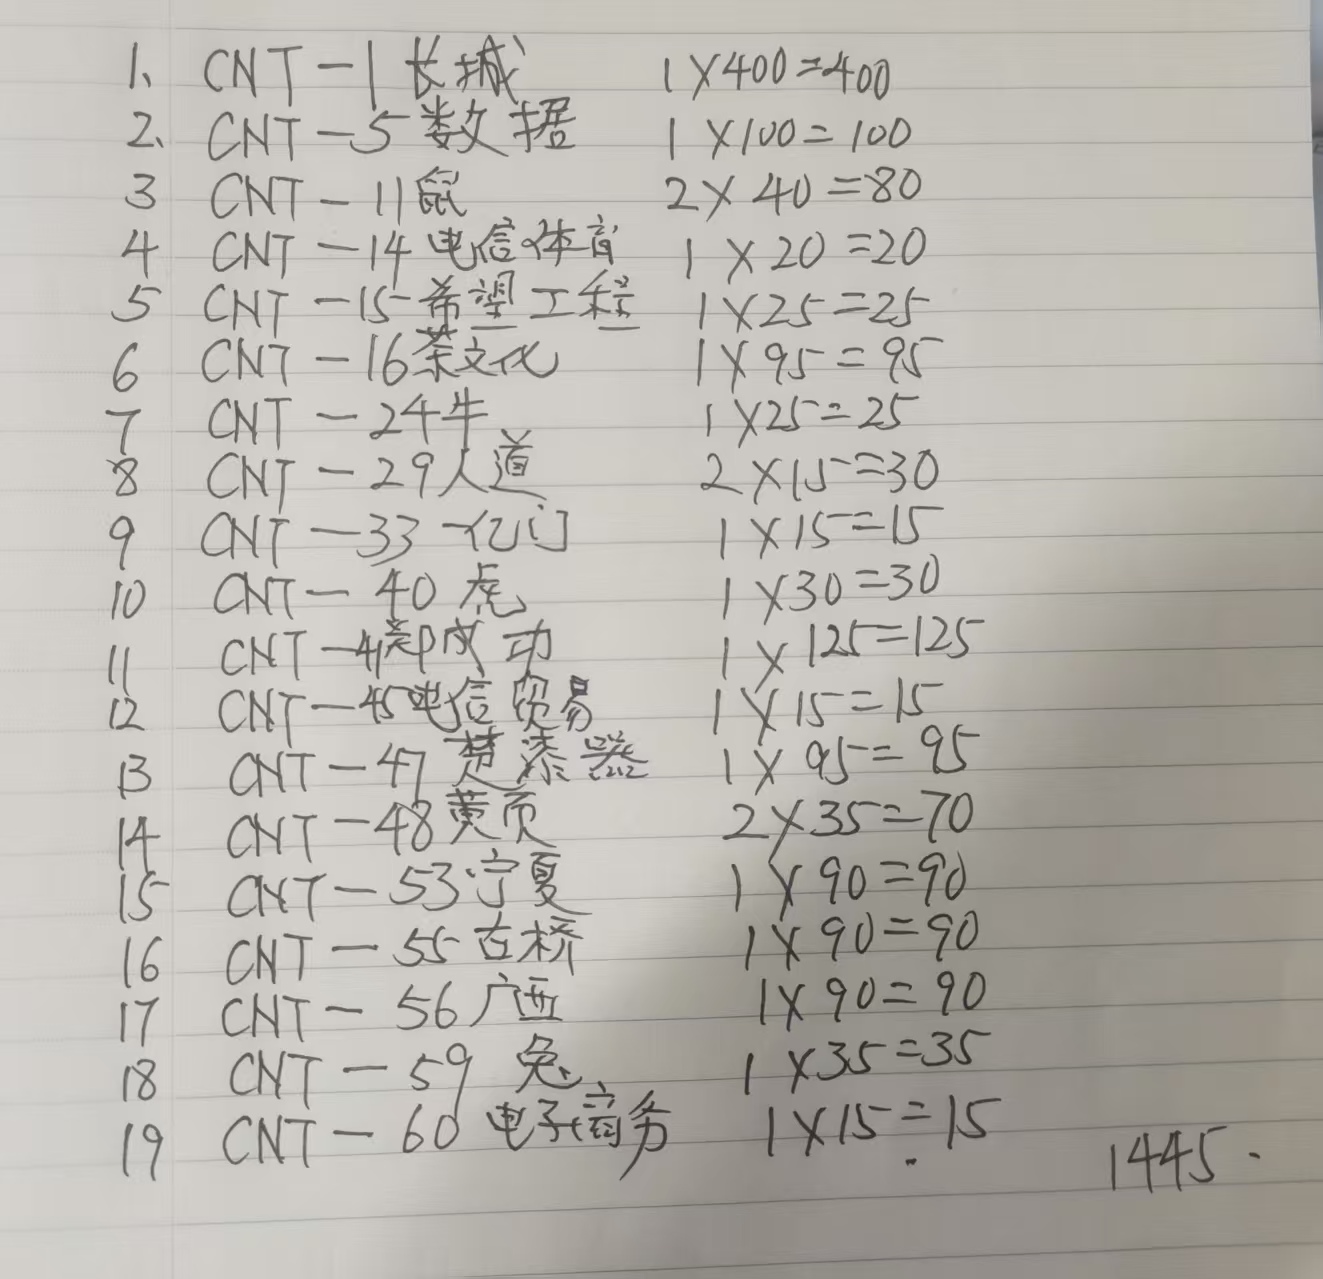 1、 CNT-1 长城 1×400=400
2、 CNT-5 数据 1×100=100
3 CNT-11 鼠 2×40=80
4 CNT-14 电信体育 1×20=20
5 CNT-15 希望工程 1×25=25
6 CNT-16 茶文化 1×95=95
7 CNT-24 牛 1×25=25
8 CNT-29 人道 2×15=30
9 CNT-33 一亿门 1×15=15
10 CNT-40 虎 1×30=30
11 CNT-41 郑成功 1×125=125
12 CNT-45 电信贸易 1×15=15
13 CNT-47 楚漆器 1×95=95
14 CNT-48 黄页 2×35=70
15 CNT-53 宁夏 1×90=90
16 CNT-55 古桥 1×90=90
17 CNT-56 广西 1×90=90
18 CNT-59 兔 1×35=35
19 CNT-60 电子商务 1×15=15
1445.